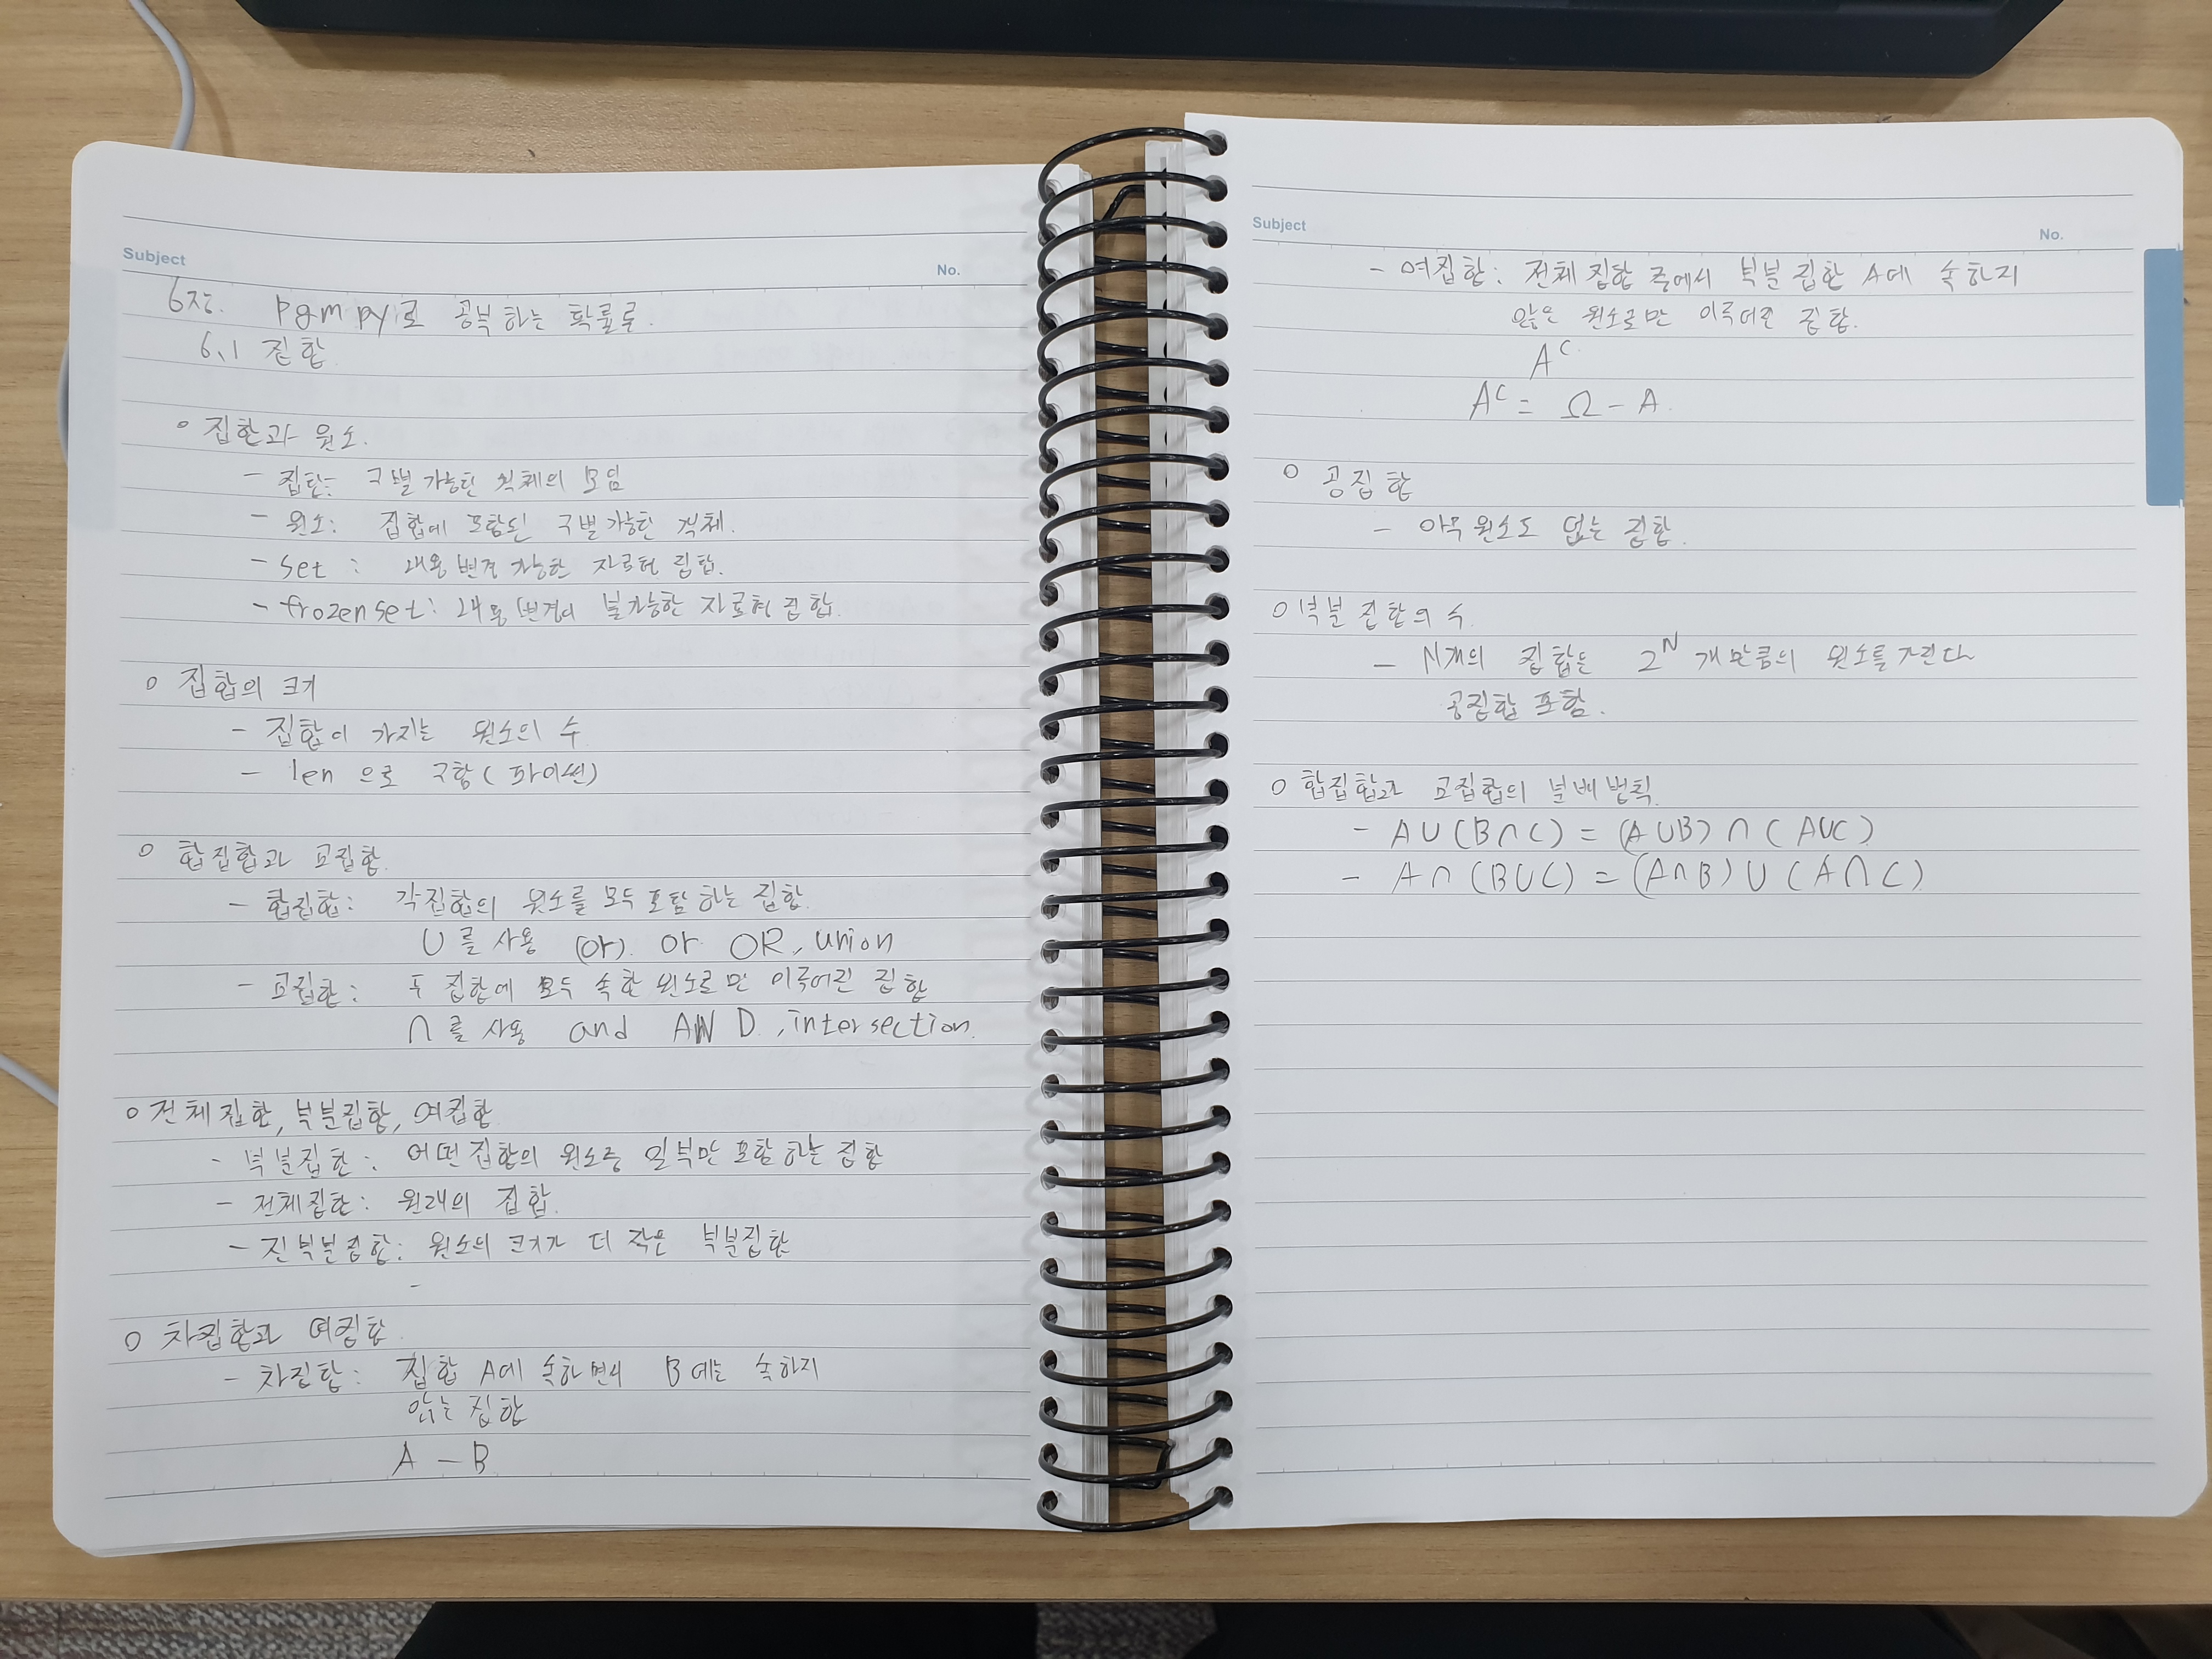 Subject
No.
6장. pgmpy로 공부하는 확률론.
6.1 집합
○ 집합과 원소.
- 집합: 구별 가능한 객체의 모임
- 원소: 집합에 포함된 구별 가능한 객체.
- set : 내용 변경 가능한 자료형 집합.
- frozenset: 내용 변경이 불가능한 자료형 집합.
○ 집합의 크기
- 집합이 가지는 원소의 수
- len 으로 구함 (파이썬)
○ 합집합과 교집합.
- 합집합: 각 집합의 원소를 모두 포함하는 집합.
∪를 사용 (or). or OR, union
- 교집합: 두 집합에 모두 속한 원소로만 이루어진 집합
∩를 사용 and AND, intersection.
○ 전체집합, 부분집합, 여집합
- 부분집합: 어떤 집합의 원소중 일부만 포함하는 집합
- 전체집합: 원래의 집합.
- 진부분집합: 원소의 크기가 더 작은 부분집합
-
○ 차집합과 여집합.
- 차집합: 집합 A에 속하면서 B에는 속하지
않는 집합
A - B
Subject
No.
- 여집합: 전체 집합 중에서 부분 집합 A에 속하지
않은 원소로만 이루어진 집합.
A^C
A^C = Ω - A.
○ 공집합
- 아무 원소도 없는 집합.
○ 부분 집합의 수.
- N개의 집합은 2^N 개 만큼의 원소를 가진다
공집합 포함.
○ 합집합과 교집합의 분배법칙.
- A∪(B∩C) = (A∪B)∩(A∪C)
- A∩(B∪C) = (A∩B)∪(A∩C)